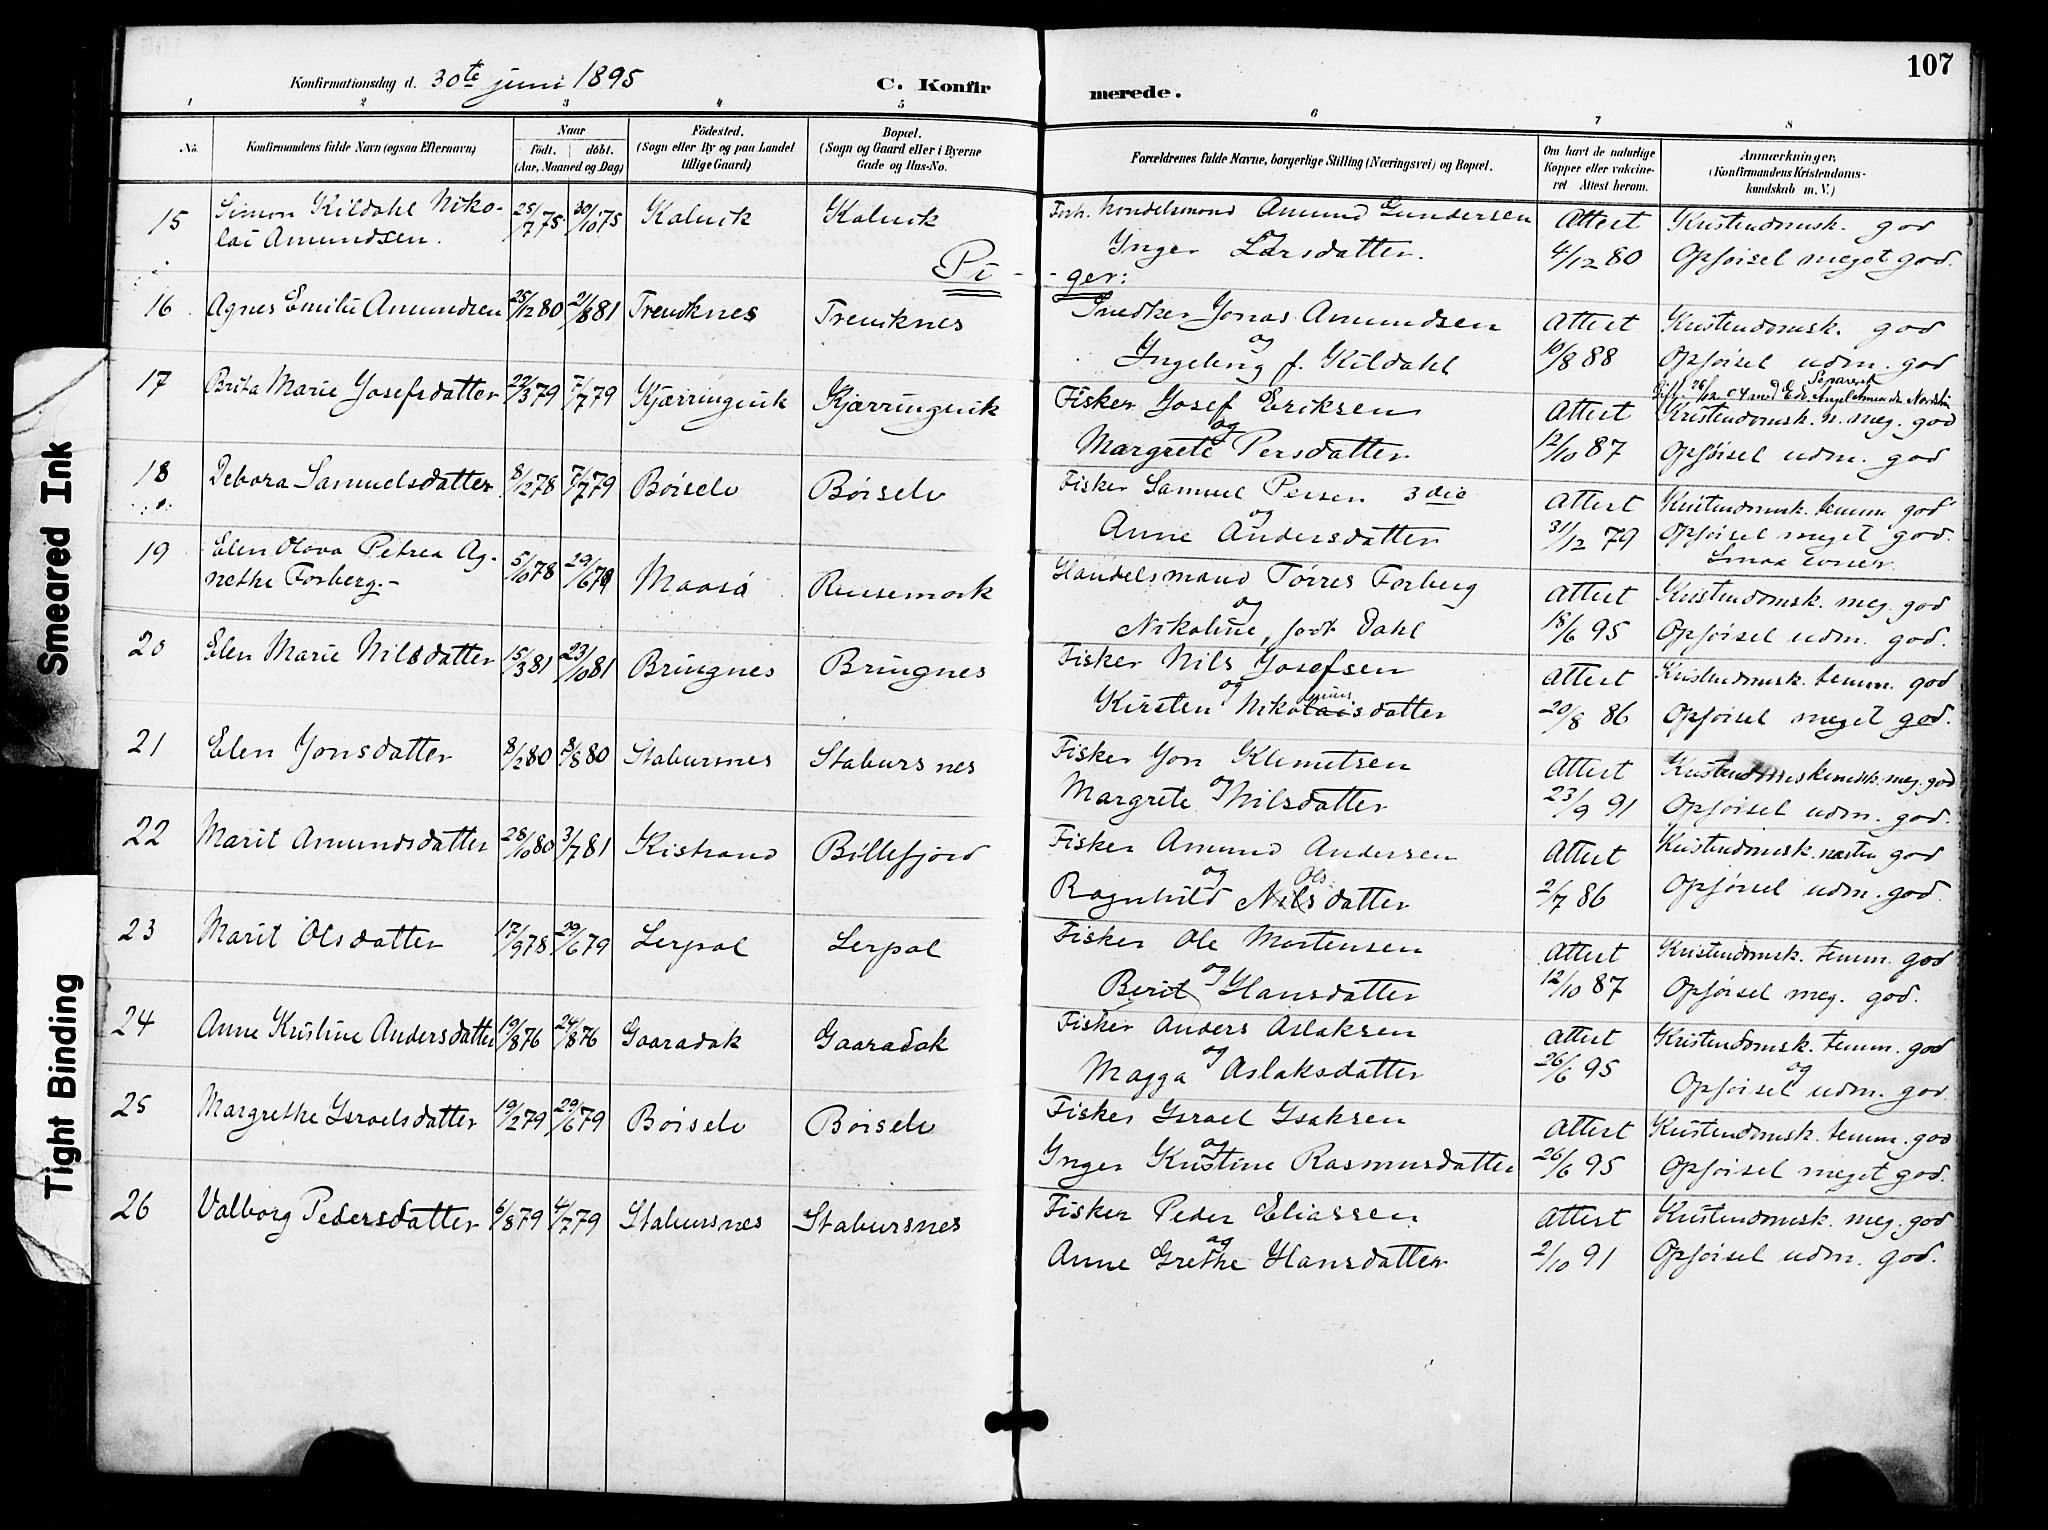 107
Konfirmationsdag d. 30te juni 1895 C. Konfirmerede.
1 2 3 4 5 6 7 8
No. Konfirmandens fulde Navn (ogsaa Efternavn) Naar födt. döbt. (Aar, Maaned og Dag) Födested. (Sogn eller By og paa Landet tillige Gaard) Bopæl. (Sogn og Gaard eller i Byerne Gade og Hus-No. Forældrenes fulde Navne, borgerlige Stilling (Næringsvei) og Bopæl. Om havt de naturlige Kopper eller vakcineret Attest herom. Anmærkninger. (Konfirmandens Kristendomskundskab m. V.)
15 Simon Kildahl Niko- 25/7 75 30/10 75 Kalvik Kalvik Forh. handelsmand Amund Gundersen Attest Kristendomsk. god
lai Amundsen. og Inger Larsdatter. 4/12 80 Opförsel meget god.
Pi- -ger:
16 Agnes Emilie Amundsen 25/12 80 21/8 81 Treviknes Treviknes Snedker Jonas Amundsen Attest Kristendomsk. god
og Ingeborg f. Kildahl 10/8 88 Opförsel udm. god
17 Brita Marie Josefsdatter 22/3 79 7/7 79 Kjærringvik Kjærringvik Fisker Josef Eriksen Attest Kristendomsk. n. meg. god
Gift 26/12 04 med
og Margrete Persdatter 12/10 87 Opförsel udm. god
18 Debora Samuelsdatter 8/12 78 7/7 79 Börselv Börselv Fisker Samuel Persen 3die Attest Kristendomsk. temm. god
og Anne Andersdatter 31/12 79 Opförsel meget god.
Smaa evner.
19 Elen Olova Petrea Ag- 5/10 78 29/6 79 Maasö Russemark Handelsmand Törres Forberg Attest Kristendomsk. meg. god
nethe Forberg.- og Nikoline, födt Dahl 18/6 95 Opförsel udm. god.
20 Elen Marie Nilsdatter 15/3 81 23/10 81 Bringnes Bringnes Fisker Nils Josefsen Attest Kristendomsk. temm. god
og Kirsten Nikolaisdatter 20/8 86 Opförsel meget god.
21 Elen Jonsdatter 8/2 80 8/8 80 Stabursnes Stabursnes Fisker Jon Klemetsen Attest meg. god
og Margrete Nilsdatter 23/9 91 Opförsel udm. god.
22 Marit Amundsdatter 28/10 80 3/7 81 Kistrand Billefjord Fisker Amund Andersen Attest Kristendomsk. næsten god
og Ols Ragnhild Nilsdatter 2/7 86 Opförsel udm. god.
23 Marit Olsdatter 17/9 78 29/6 79 Lerpol Lerpol Fisker Ole Mortensen Attest Kristendomsk. temm. god
og Berit Hansdatter 12/10 87 Opförsel meg. god.
24 Anne Kristine Andersdatter 19/8 76 24/8 76 Gaaradak Gaaradak Fisker Anders Aslaksen Attest Kristendomsk. temm. god
og Magga Aslaksdatter 26/6 95 og Opförsel udm. god
25 Margrethe Israelsdatter 19/2 79 29/6 79 Börselv Börselv Fisker Israel Isaksen Attest Kristendomsk. temm. god
og Inger Kristine Rasmusdatter 26/6 95 Opförsel meget god.
26 Valborg Pedersdatter 6/8 79 4/7 79 Stabursnes Stabursnes Fisker Peder Eliassen Attest Kristendomsk. meg. god
og Anne Grethe Hansdatter 2/10 91 Opförsel udm. god.
Smeared Ink
Tight Binding